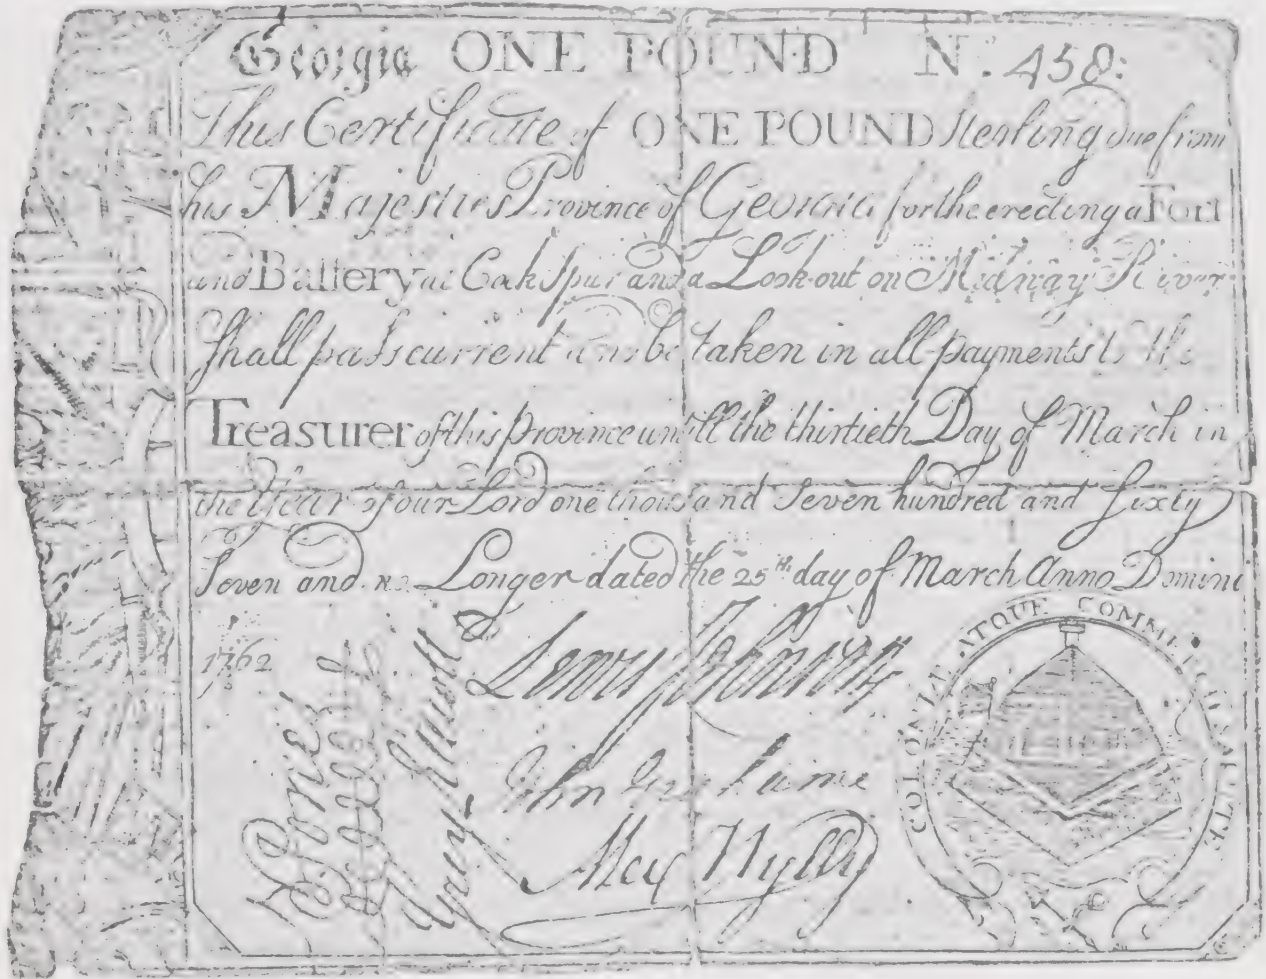 Georgia ONE POUND N. 458:
This Certificate of ONE POUND Sterling due from
his Majesties Province of Georgia for the erecting a Fort
and Battery at Cockspur and a Look-out on Midway River
Shall pass current and be taken in all payments to the
Treasurer of this province untill the thirtieth Day of March in
the Year of our Lord one thousand Seven hundred and Sixty
Seven and no Longer dated the 25th day of March Anno Domini
1762
Lewis Johnson
Grey Elliott
John
Alex Wylly
N Jones
COLONIÆ ATQUE COMMERCII SALUTE